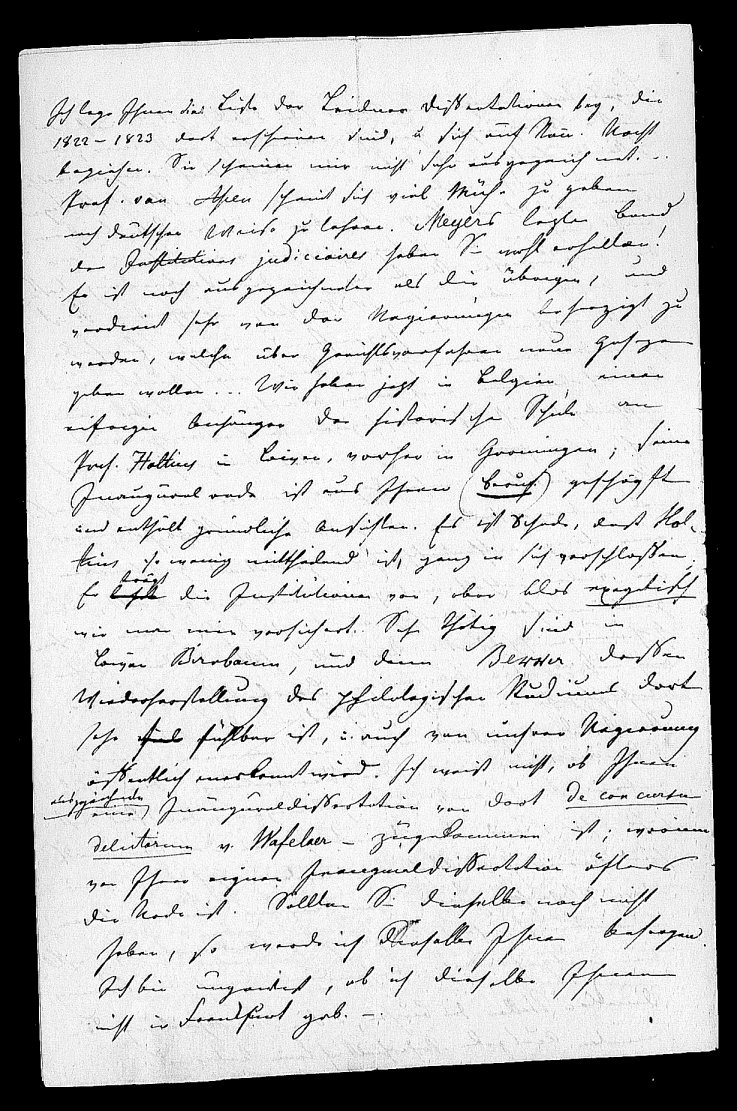 Ich lege Ihnen die Liste der Leidner Dissertationen bey, die
1822 – 1823 dort erschienen sind, u sich auf Röm. Recht
beziehen. Sie scheinen mir nicht sehr ausgezeichnet. –
Prof. van Assen scheint sich viel Mühe zu geben
nach deutscher Weise zu lehren. Meyers letzten Band
der Institutions judiciaires haben Sie wohl erhalten!
Er ist noch ausgezeichneter als die übrigen, und
verdient sehr von den Regierungen beherzigt zu
werden, welche über Gerichtsverfahren neue Gesetze
geben wollen ... Wir haben jetzt in Belgien einen
eifrigen Anhänger der historischen Schule an
Prof. Holtius in Löwen, vorher in Groningen; seine
Inaugural rede ist aus Ihrem (Beruf) geschöpft
und enthält gründliche Ansichten. Es ist Schade, dass Hol-
tius so wenig mittheilend ist, ganz in sich verschlossen.
Er trägt die Institutionen vor, aber blos exegetisch
wie man mir versichert. Sehr thätig sind in
Löwen Birnbaum, und dann Bekker dessen
Wiederherstellung des philologischen Studiums dort
sehr fühlbar ist, u. auch von unsrer Regierung
öffentlich anerkannt wird. Ich weiß nicht, ob Ihnen
ausgezeichnete
eine Inauguraldissertation von dort De concursu
delictorum v. Wafelaer – zugekommen ist; worinn
von Ihrer eignen Inauguraldissertation öfters
die Rede ist. Sollten Sie dieselbe noch nicht
haben, so werde ich dieselbe Ihnen besorgen.
Ich bin ungewiß, ob ich dieselbe Ihnen
nicht in Frankfurt gab. –